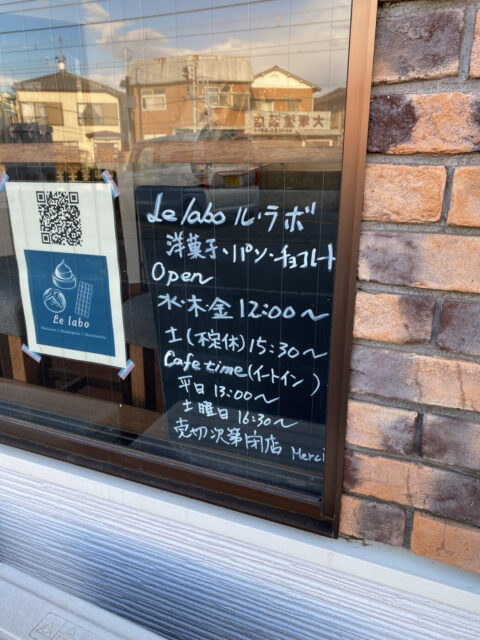 大塚塗装店
Le labo
Pâtisserie / Boulangerie / Chocolaterie
Le labo ル・ラボ
洋菓子・パン・チョコレート
Open
水・木・金 12:00〜
土(不定休) 15:30〜
Cafe time(イートイン)
平日 13:00〜
土曜日 16:30〜
売切次第閉店 Merci